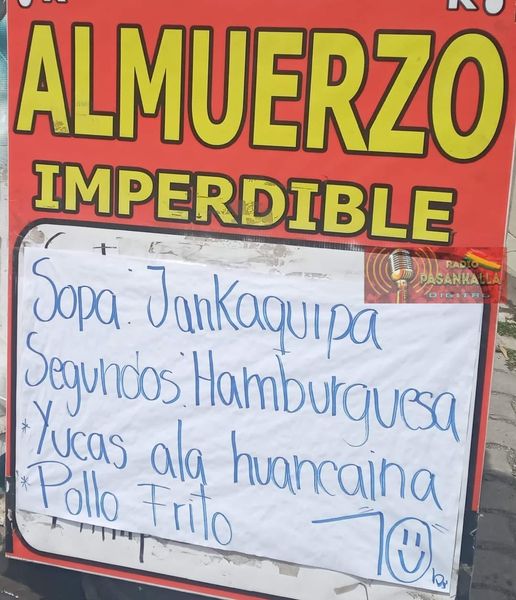 ALMUERZO
IMPERDIBLE
RADIO
PASANKALLA
DIGITAL
Sopa: Jankaquipa
Segundos: Hamburguesa
*Yucas ala huancaina
*Pollo Frito 10 bs